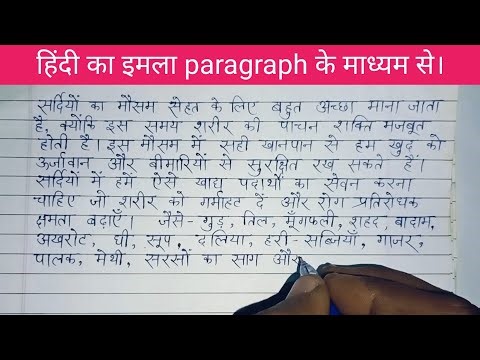 हिंदी का इमला paragraph के माध्यम से।
सर्दियों का मौसम सेहत के लिए बहुत अच्छा माना जाता
है, क्योंकि इस समय शरीर की पाचन शक्ति मजबूत
होती है। इस मौसम में सही खानपान से हम खुद को
ऊर्जावान और बीमारियों से सुरक्षित रख सकते हैं।
सर्दियों में हमें ऐसे खाद्य पदार्थों का सेवन करना
चाहिए जो शरीर को गर्माहट दें और रोग प्रतिरोधक
क्षमता बढ़ाएँ। जैसे- गुड़, तिल, मूँगफली, शहद, बादाम,
अखरोट, घी, सूप, दलिया, हरी-सब्जियाँ, गाजर,
पालक, मेथी, सरसों का साग और